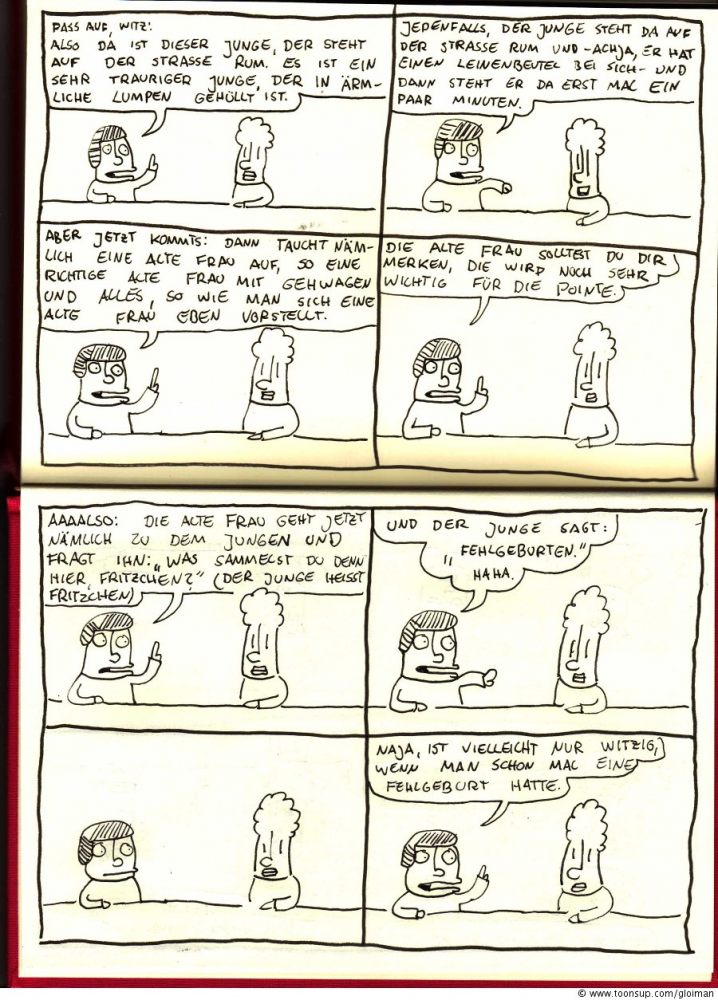 PASS AUF, WITZ:
ALSO DA IST DIESER JUNGE, DER STEHT
AUF DER STRASSE RUM. ES IST EIN
SEHR TRAURIGER JUNGE, DER IN ÄRM-
LICHE LUMPEN GEHÜLLT IST.
JEDENFALLS, DER JUNGE STEHT DA AUF
DER STRASSE RUM UND -ACHJA, ER HAT
EINEN LEINENBEUTEL BEI SICH- UND
DANN STEHT ER DA ERST MAL EIN
PAAR MINUTEN.
ABER JETZT KOMMTS: DANN TAUCHT NÄM-
LICH EINE ALTE FRAU AUF, SO EINE
RICHTIGE ALTE FRAU MIT GEHWAGEN
UND ALLES, SO WIE MAN SICH EINE
ALTE FRAU EBEN VORSTELLT.
DIE ALTE FRAU SOLLTEST DU DIR
MERKEN, DIE WIRD NOCH SEHR
WICHTIG FÜR DIE POINTE.
AAAALSO: DIE ALTE FRAU GEHT JETZT
NÄMLICH ZU DEM JUNGEN UND
FRAGT IHN: „WAS SAMMELST DU DENN
HIER, FRITZCHEN?" (DER JUNGE HEISST
FRITZCHEN)
UND DER JUNGE SAGT:
„FEHLGEBURTEN."
HAHA.
NAJA, IST VIELLEICHT NUR WITZIG,
WENN MAN SCHON MAL EINE
FEHLGEBURT HATTE.
© www.toonsup.com/gloiman